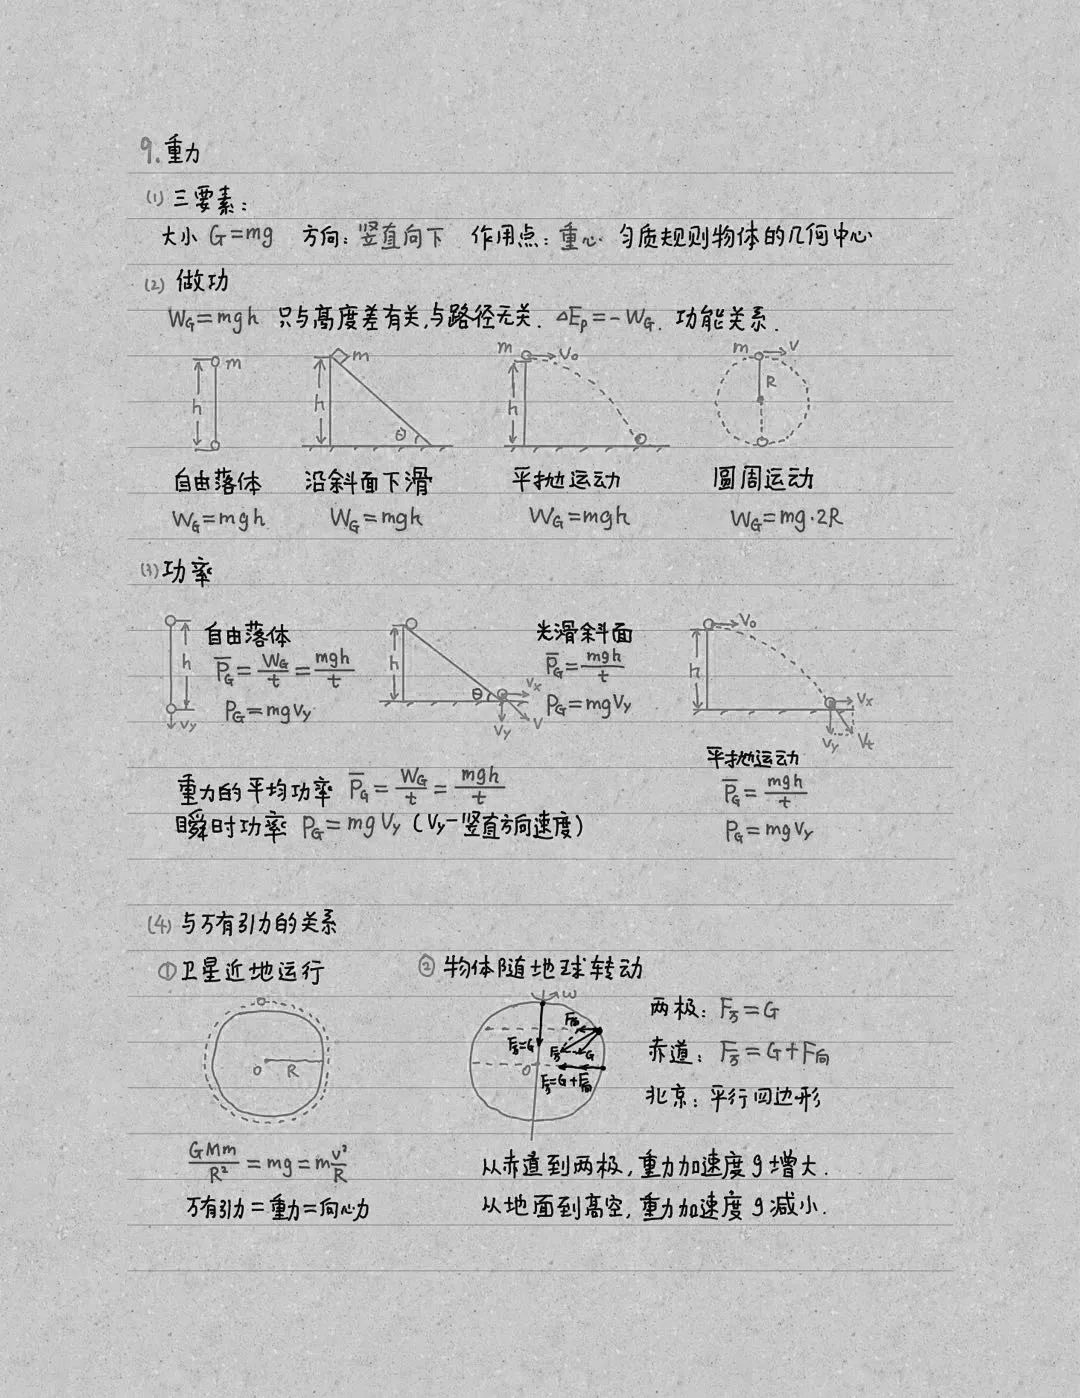 9. 重力
(1) 三要素：
大小 G=mg 方向：竖直向下 作用点：重心 匀质规则物体的几何中心
(2) 做功
W_G=mgh 只与高度差有关,与路径无关. △E_p=-W_G. 功能关系.
h m h m θ m v₀ h m v R
自由落体 沿斜面下滑 平抛运动 圆周运动
W_G=mgh W_G=mgh W_G=mgh W_G=mg·2R
(3) 功率
h v_y
自由落体
P̅_G=W_G/t=mgh/t
P_G=mgv_y
h θ v_x v_y v
光滑斜面
P̅_G=mgh/t
P_G=mgv_y
v₀ h v_x v_y v_t
平抛运动
P̅_G=mgh/t
P_G=mgv_y
重力的平均功率 P̅_G=W_G/t=mgh/t
瞬时功率 P_G=mgv_y (v_y-竖直方向速度)
(4) 与万有引力的关系
① 卫星近地运行
O R
GMm/R²=mg=mv²/R
万有引力=重力=向心力
② 物体随地球转动
ω
F_万=G F_向 F_万 G
O F_万=G+F_向
两极：F_万=G
赤道：F_万=G+F_向
北京：平行四边形
从赤道到两极,重力加速度g增大.
从地面到高空,重力加速度g减小.